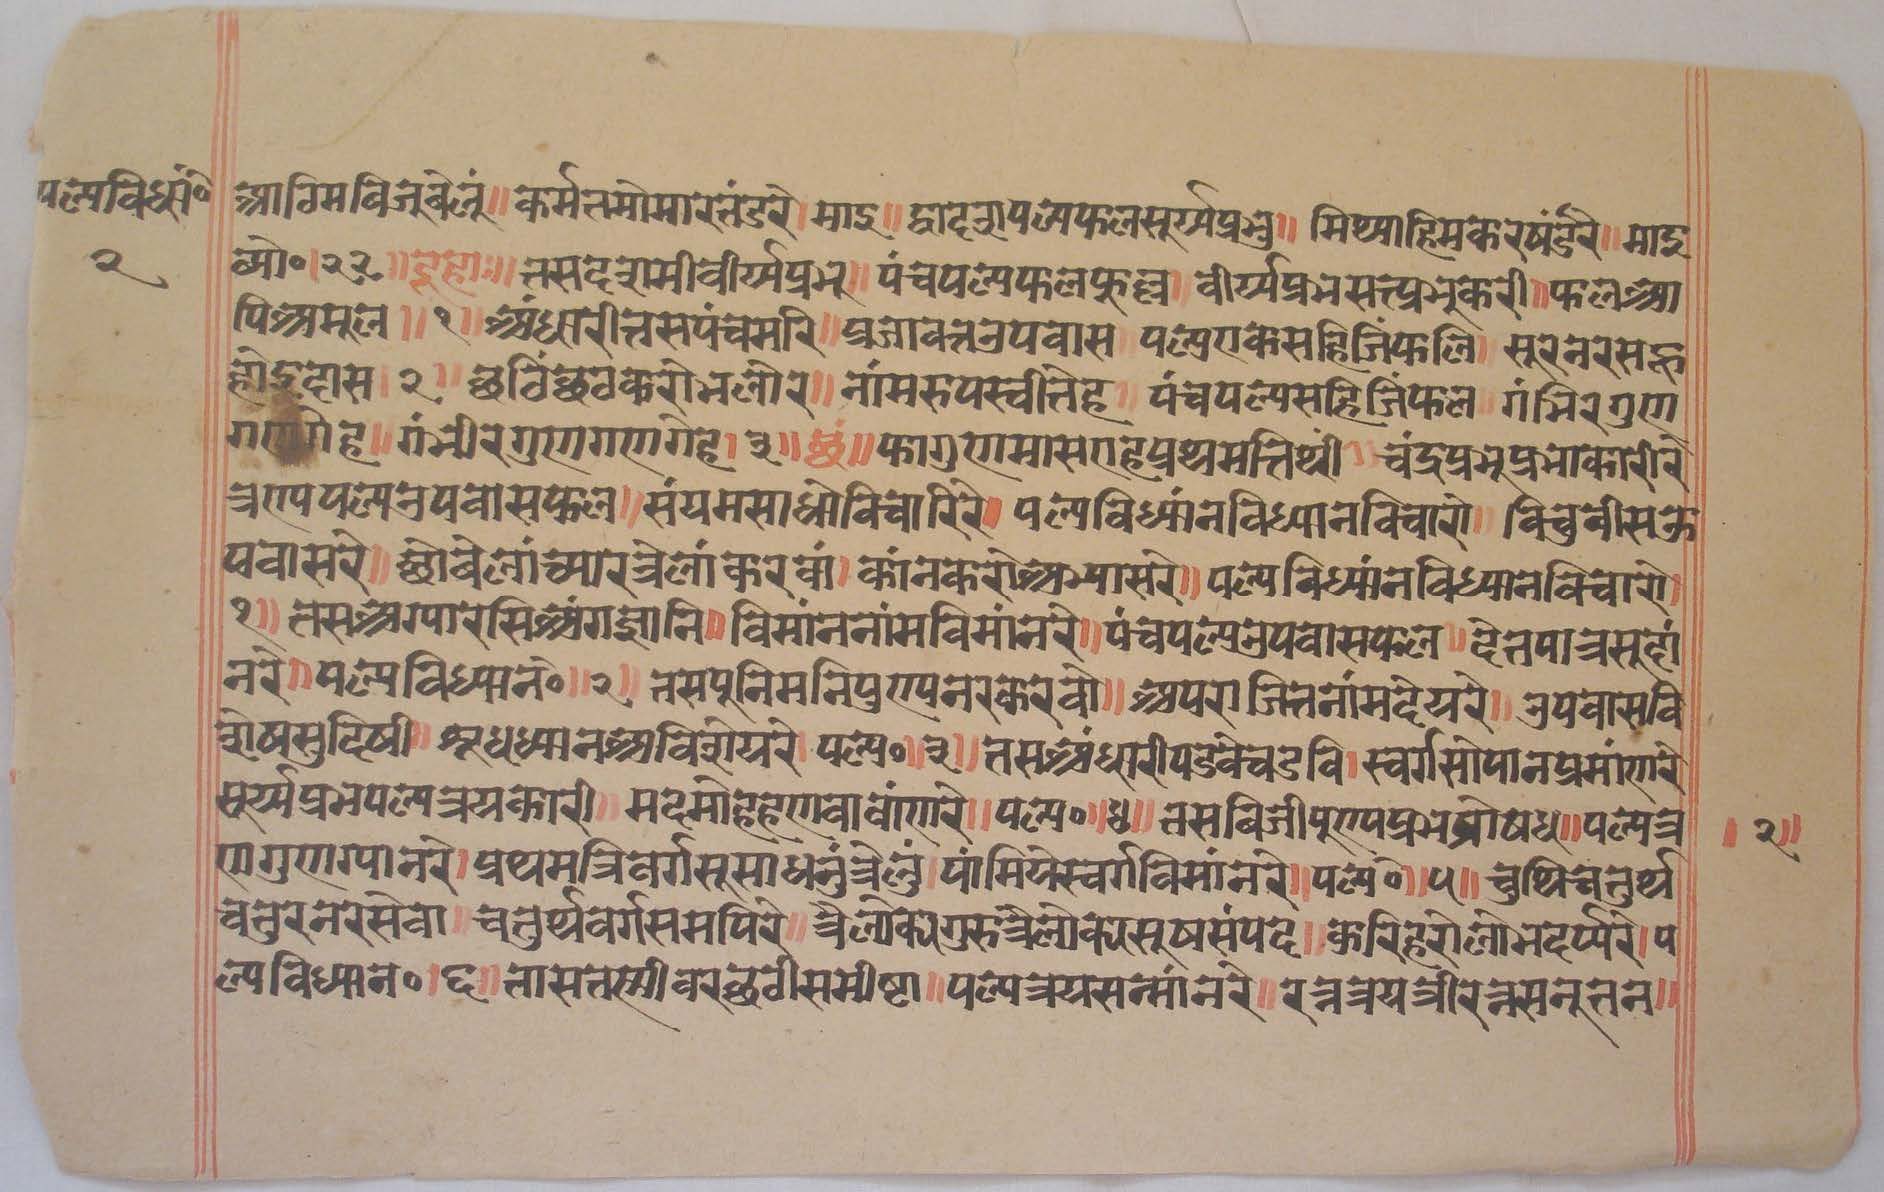 पल्यविधां०
२
आठिमबिजुवेलुं॥ कर्मतमोमारतंडरे। माइ॥ द्वादशपल्यफलसूर्य्यप्रभु॥ मिथ्याहिमकरषंडरे॥ माइ
व्यो०।२३॥ दूहा॥ तसदशमीवीर्य्यप्रभू॥ पंचपल्यफलफुल्ल॥ वीर्य्यप्रभसत्प्रभुकरी॥ फलआ
पिअमूल॥१॥ अंधारीतसपंचमरि॥ प्रजावत्तउपवास॥ पल्यएकसहिजिंफलि॥ सूरनरसहू
होइदास।२॥ छठिंछठकरोभलोर॥ नांमरुपस्वीतेह॥ पंचपल्यसहिजिंफल॥ गंभिरगुण
गणगेह॥ गंभीरगुणगणगेह।३॥ छं॥ फागुणमासएहप्रथमतिथीं॥ चंद्रप्रभूप्रभाकारीरे
त्रण्यपल्यउपवासफल॥ संयमसाधोविचारिरे॥ पल्यविध्यांनविध्यानविचारो॥ विचुवीसऊ
पवासरे॥ छोवेलांच्यारत्रेलांकरवां। कांनकरोअभ्यासरे॥ पल्यविध्यांनविध्यानविचारो॥
१॥ तसअग्यारसिअंगज्ञानि॥ विमांननांमविमांनरे॥ पंचपल्यउपवासफल॥ देतपात्रसूदां
नरे॥ पल्यविध्यान०॥२॥ तसपूनिमनिपुण्यनरकरवो॥ अपराजितनांमदेयरे॥ उपवासवि
शेषसुदिषी॥ शूधध्यानअविशेयरे॥ पल्य०॥३॥ तसअंधारीपडवेचडवि। स्वर्गसोपानप्रमांणरे
सूर्य्यप्रभपल्यत्रयकारी॥ मदमोहहणवाबांणरे॥ पल्य०॥४॥ तसबिजीपुण्यप्रभप्रोषध॥ पल्यत्र
णगुणग्यानरे। प्रथमत्रिवर्गसूसाधनुंत्रेलुं। पांमियेस्वर्गविमांनरे॥ पल्य०॥५॥ चुथिचतुर्थ
चतुरनरसेवा॥ चतुर्थवर्गसमपिरे॥ त्रैलोक्यगुरुत्रैलोक्यसूषसंपद॥ करिहरोलोभदर्प्परे। प
ल्यविध्यान०।६॥ तासतणीवरछठीसमीष्टा॥ पल्यत्रयसन्मांनरे॥ रत्नत्रयश्रीरत्नसनूतन॥
॥२॥